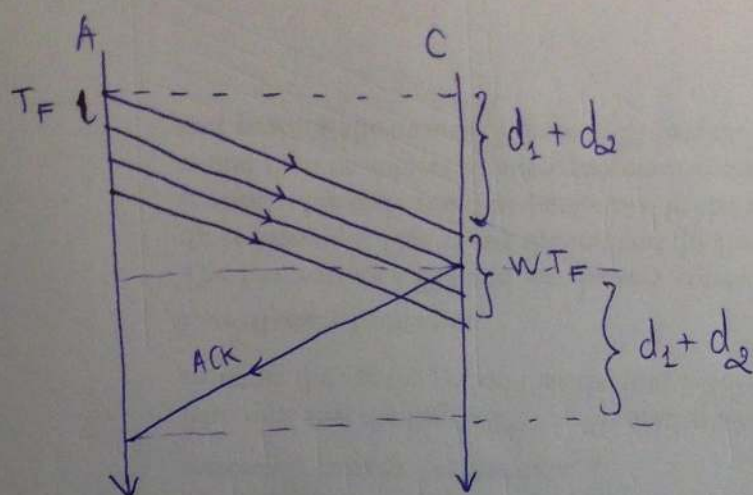 A C
T_F
d₁ + d₂
W·T_F
d₁ + d₂
ACK